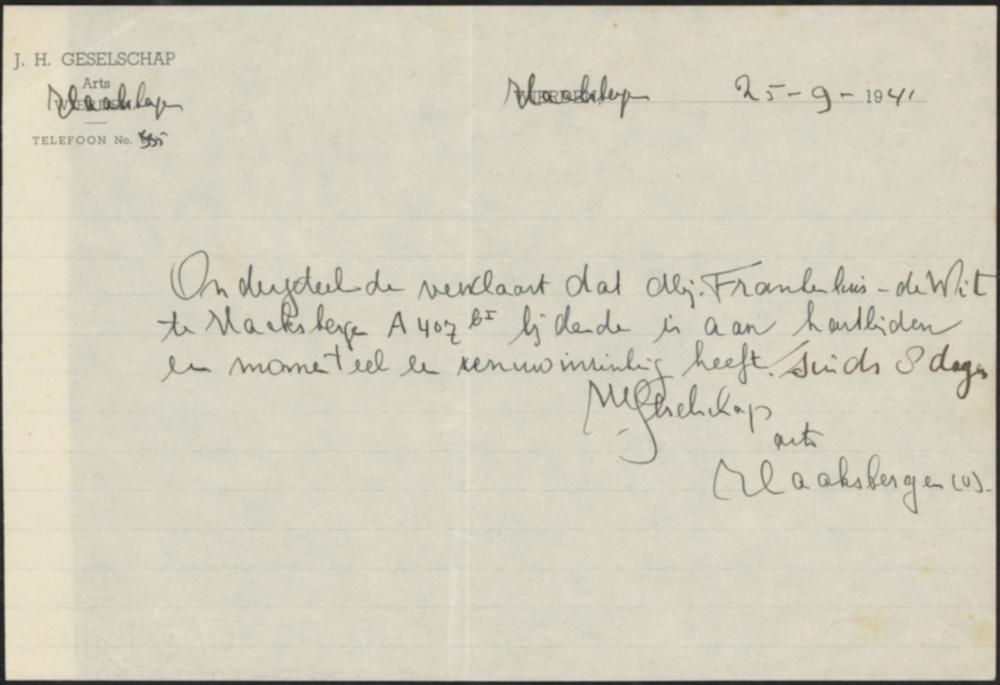 J. H. GESELSCHAP
Arts
Haaksbergen
TELEFOON No.
Haaksbergen 25-9-1941
Ondergeteekende verklaart dat Mej. Frankenhuis-de Wit
te Haaksbergen A 407 bI lijdende is aan hartlijden
en momenteel een zenuwinzinking heeft. sinds 8 dagen
JHGeselschap
arts
Haaksbergen (O).